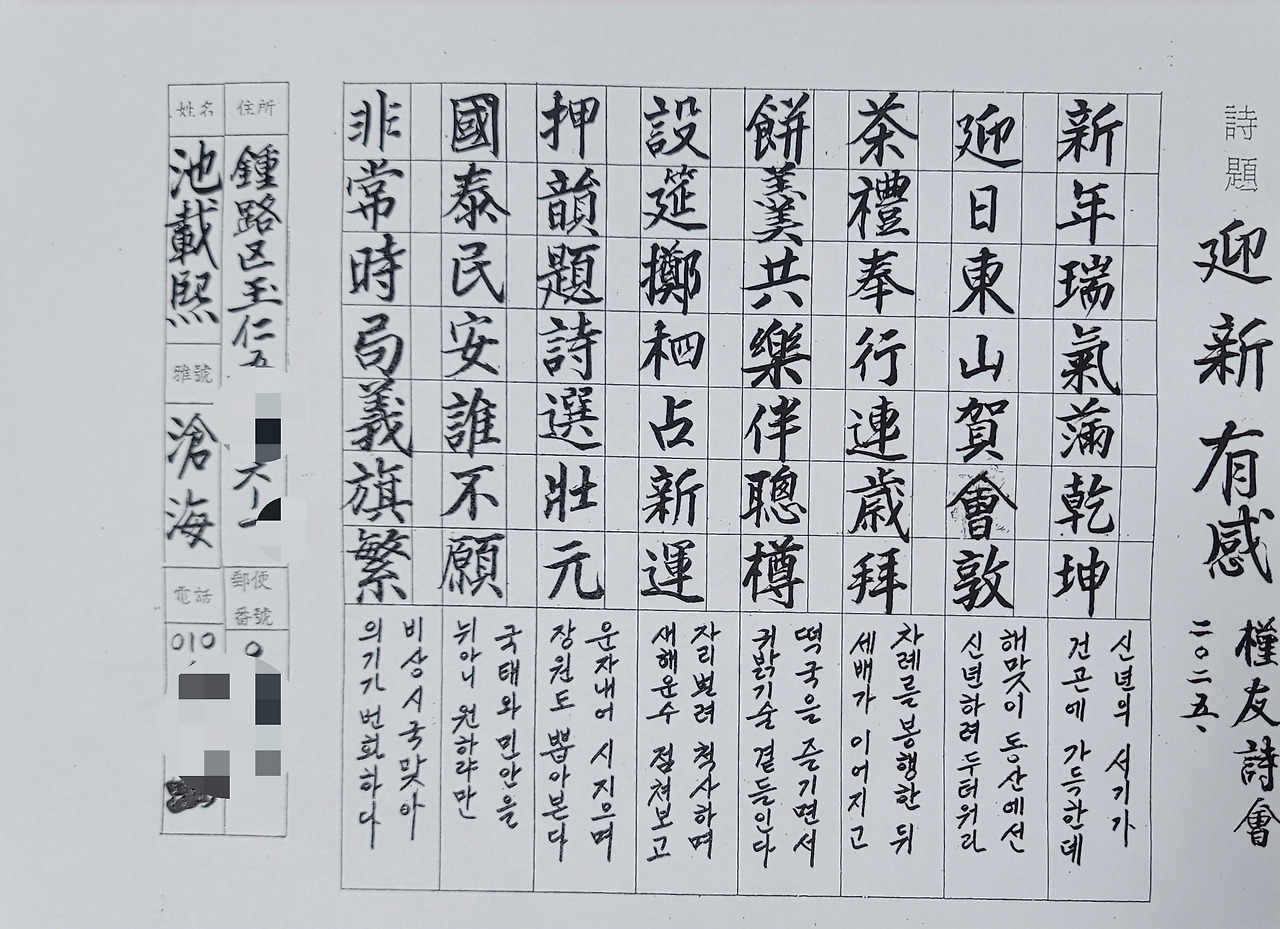 詩題 迎新有感
槿友詩會
二〇二五、
新年瑞氣滿乾坤
신년의 서기가
건곤에 가득한데
迎日東山賀會敦
해맞이 동산에선
신년하례 두터워라
茶禮奉行連歲拜
차례를 봉행한 뒤
세배가 이어지고
餠羹共樂伴聰樽
떡국을 즐기면서
귀밝기술 곁들인다
設筵擲柶占新運
자리벌려 척사하며
새해운수 점쳐보고
押韻題詩選壯元
운자내어 시지으며
장원도 뽑아본다
國泰民安誰不願
국태와 민안을
뉘아니 원하랴만
非常時局義旗繁
비상시국 맞아
의기가 번화하다
住所
鍾路区玉仁五
郵便番號
姓名
池載熙
雅號
滄海
電話
010